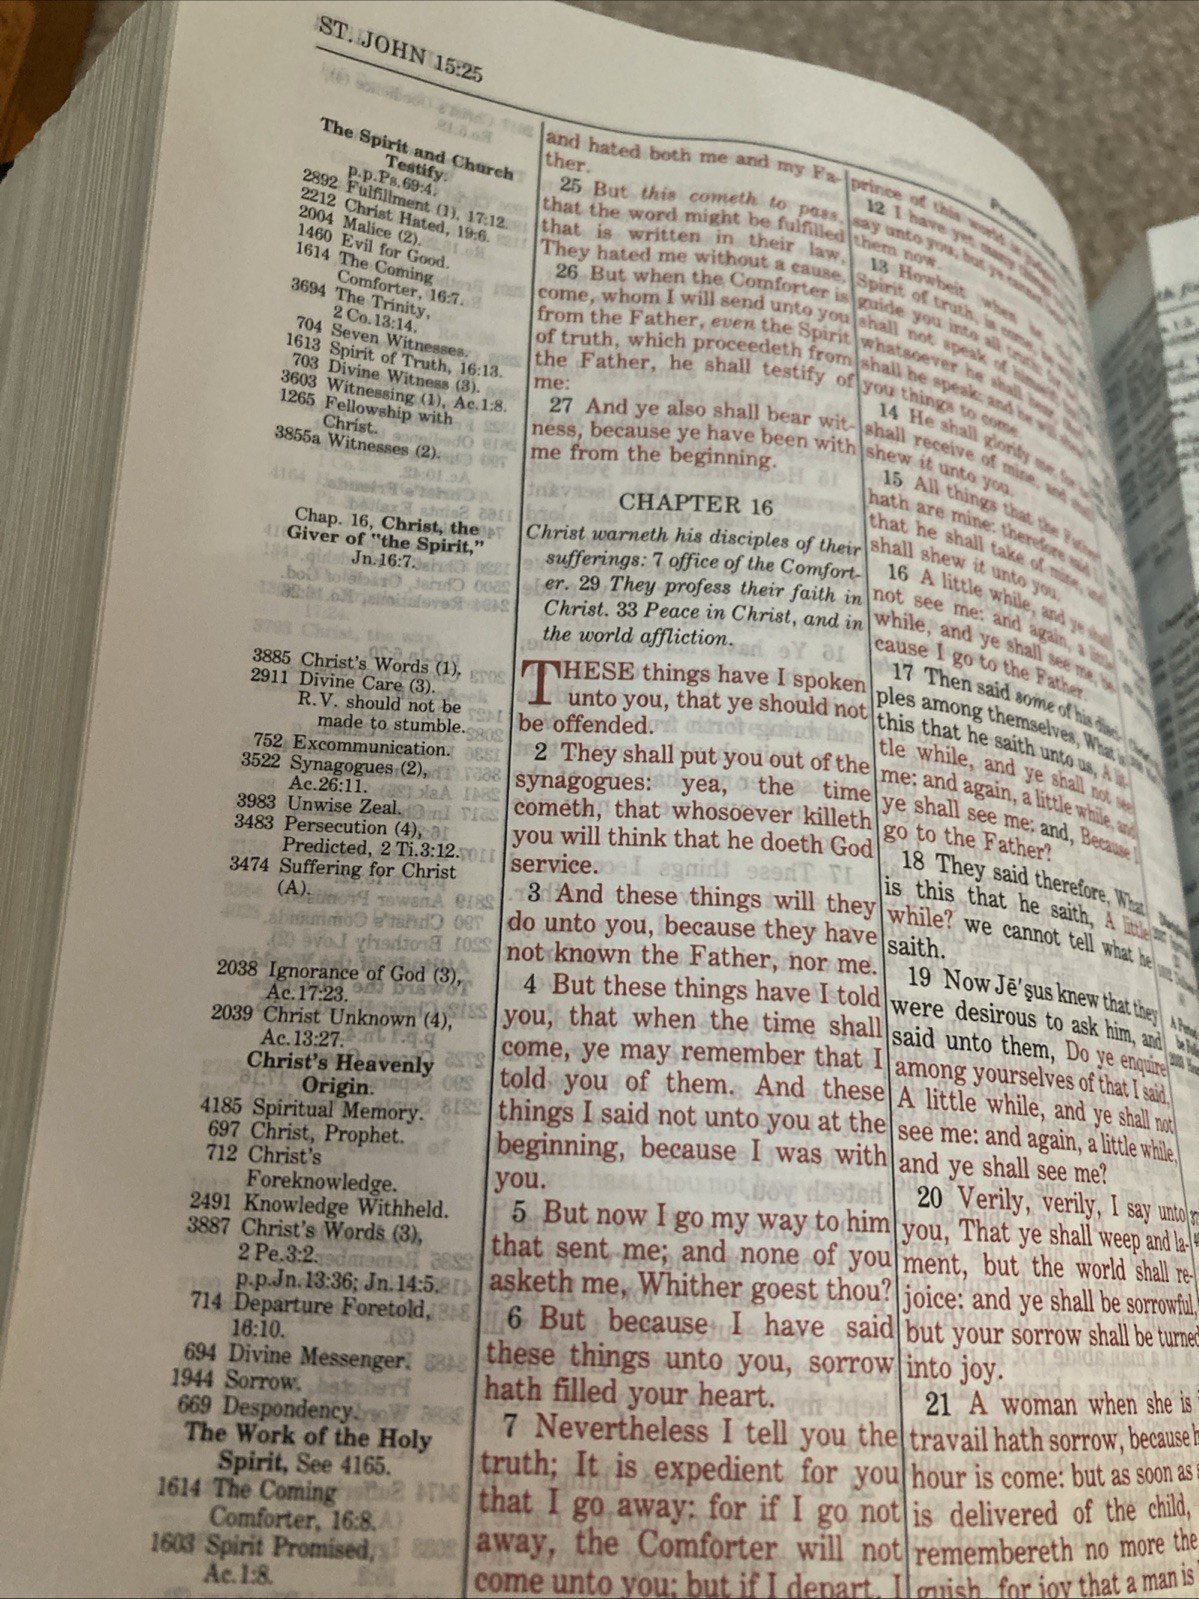 ST. JOHN 15:25
The Spirit and Church
Testify.
p.p.Ps.69:4.
2892 Fulfillment (1), 17:12.
2212 Christ Hated, 19:6.
2004 Malice (2).
1460 Evil for Good.
1614 The Coming
Comforter, 16:7.
3694 The Trinity,
2 Co.13:14.
704 Seven Witnesses.
1613 Spirit of Truth, 16:13.
703 Divine Witness (3).
3603 Witnessing (1), Ac.1:8.
1265 Fellowship with
Christ.
3855a Witnesses (2).
Chap. 16, Christ, the
Giver of "the Spirit,"
Jn.16:7.
3885 Christ's Words (1),
2911 Divine Care (3).
R.V. should not be
made to stumble.
752 Excommunication.
3522 Synagogues (2),
Ac.26:11.
3983 Unwise Zeal.
3483 Persecution (4),
Predicted, 2 Ti.3:12.
3474 Suffering for Christ
(A).
2038 Ignorance of God (3),
Ac.17:23.
2039 Christ Unknown (4),
Ac.13:27.
Christ's Heavenly
Origin.
4185 Spiritual Memory.
697 Christ, Prophet.
712 Christ's
Foreknowledge.
2491 Knowledge Withheld.
3887 Christ's Words (3),
2 Pe.3:2.
p.p.Jn.13:36; Jn.14:5.
714 Departure Foretold,
16:10.
694 Divine Messenger.
1944 Sorrow.
669 Despondency.
The Work of the Holy
Spirit, See 4165.
1614 The Coming
Comforter, 16:8.
1603 Spirit Promised,
Ac.1:8.
and hated both me and my Fa-
ther.
25 But this cometh to pass,
that the word might be fulfilled
that is written in their law,
They hated me without a cause.
26 But when the Comforter is
come, whom I will send unto you
from the Father, even the Spirit
of truth, which proceedeth from
the Father, he shall testify of
me:
27 And ye also shall bear wit-
ness, because ye have been with
me from the beginning.
CHAPTER 16
Christ warneth his disciples of their
sufferings: 7 office of the Comfort-
er. 29 They profess their faith in
Christ. 33 Peace in Christ, and in
the world affliction.
THESE things have I spoken
unto you, that ye should not
be offended.
2 They shall put you out of the
synagogues: yea, the time
cometh, that whosoever killeth
you will think that he doeth God
service.
3 And these things will they
do unto you, because they have
not known the Father, nor me.
4 But these things have I told
you, that when the time shall
come, ye may remember that I
told you of them. And these
things I said not unto you at the
beginning, because I was with
you.
5 But now I go my way to him
that sent me; and none of you
asketh me, Whither goest thou?
6 But because I have said
these things unto you, sorrow
hath filled your heart.
7 Nevertheless I tell you the
truth; It is expedient for you
that I go away: for if I go not
away, the Comforter will not
come unto you; but if I depart, I
prince of this world is
12 I have yet many
say unto you, but ye cannot
them now.
13 Howbeit when
Spirit of truth, is come,
guide you into all truth: for
shall not speak of himself;
whatsoever he shall hear,
shall he speak: and he will shew
you things to come.
14 He shall glorify me: for
shall receive of mine, and shall
shew it unto you.
15 All things that the Father
hath are mine: therefore said I,
that he shall take of mine, and
shall shew it unto you.
16 A little while, and ye shall
not see me: and again, a little
while, and ye shall see me, be-
cause I go to the Father.
17 Then said some of his disci-
ples among themselves, What is
this that he saith unto us, A lit-
tle while, and ye shall not see
me: and again, a little while, and
ye shall see me: and, Because I
go to the Father?
18 They said therefore, What
is this that he saith, A little
while? we cannot tell what he
saith.
19 Now Jē'ṣus knew that they
were desirous to ask him, and
said unto them, Do ye enquire
among yourselves of that I said,
A little while, and ye shall not
see me: and again, a little while,
and ye shall see me?
20 Verily, verily, I say unto
you, That ye shall weep and la-
ment, but the world shall re-
joice: and ye shall be sorrowful,
but your sorrow shall be turned
into joy.
21 A woman when she is
travail hath sorrow, because
hour is come: but as soon as
is delivered of the child,
remembereth no more the
guish, for joy that a man is